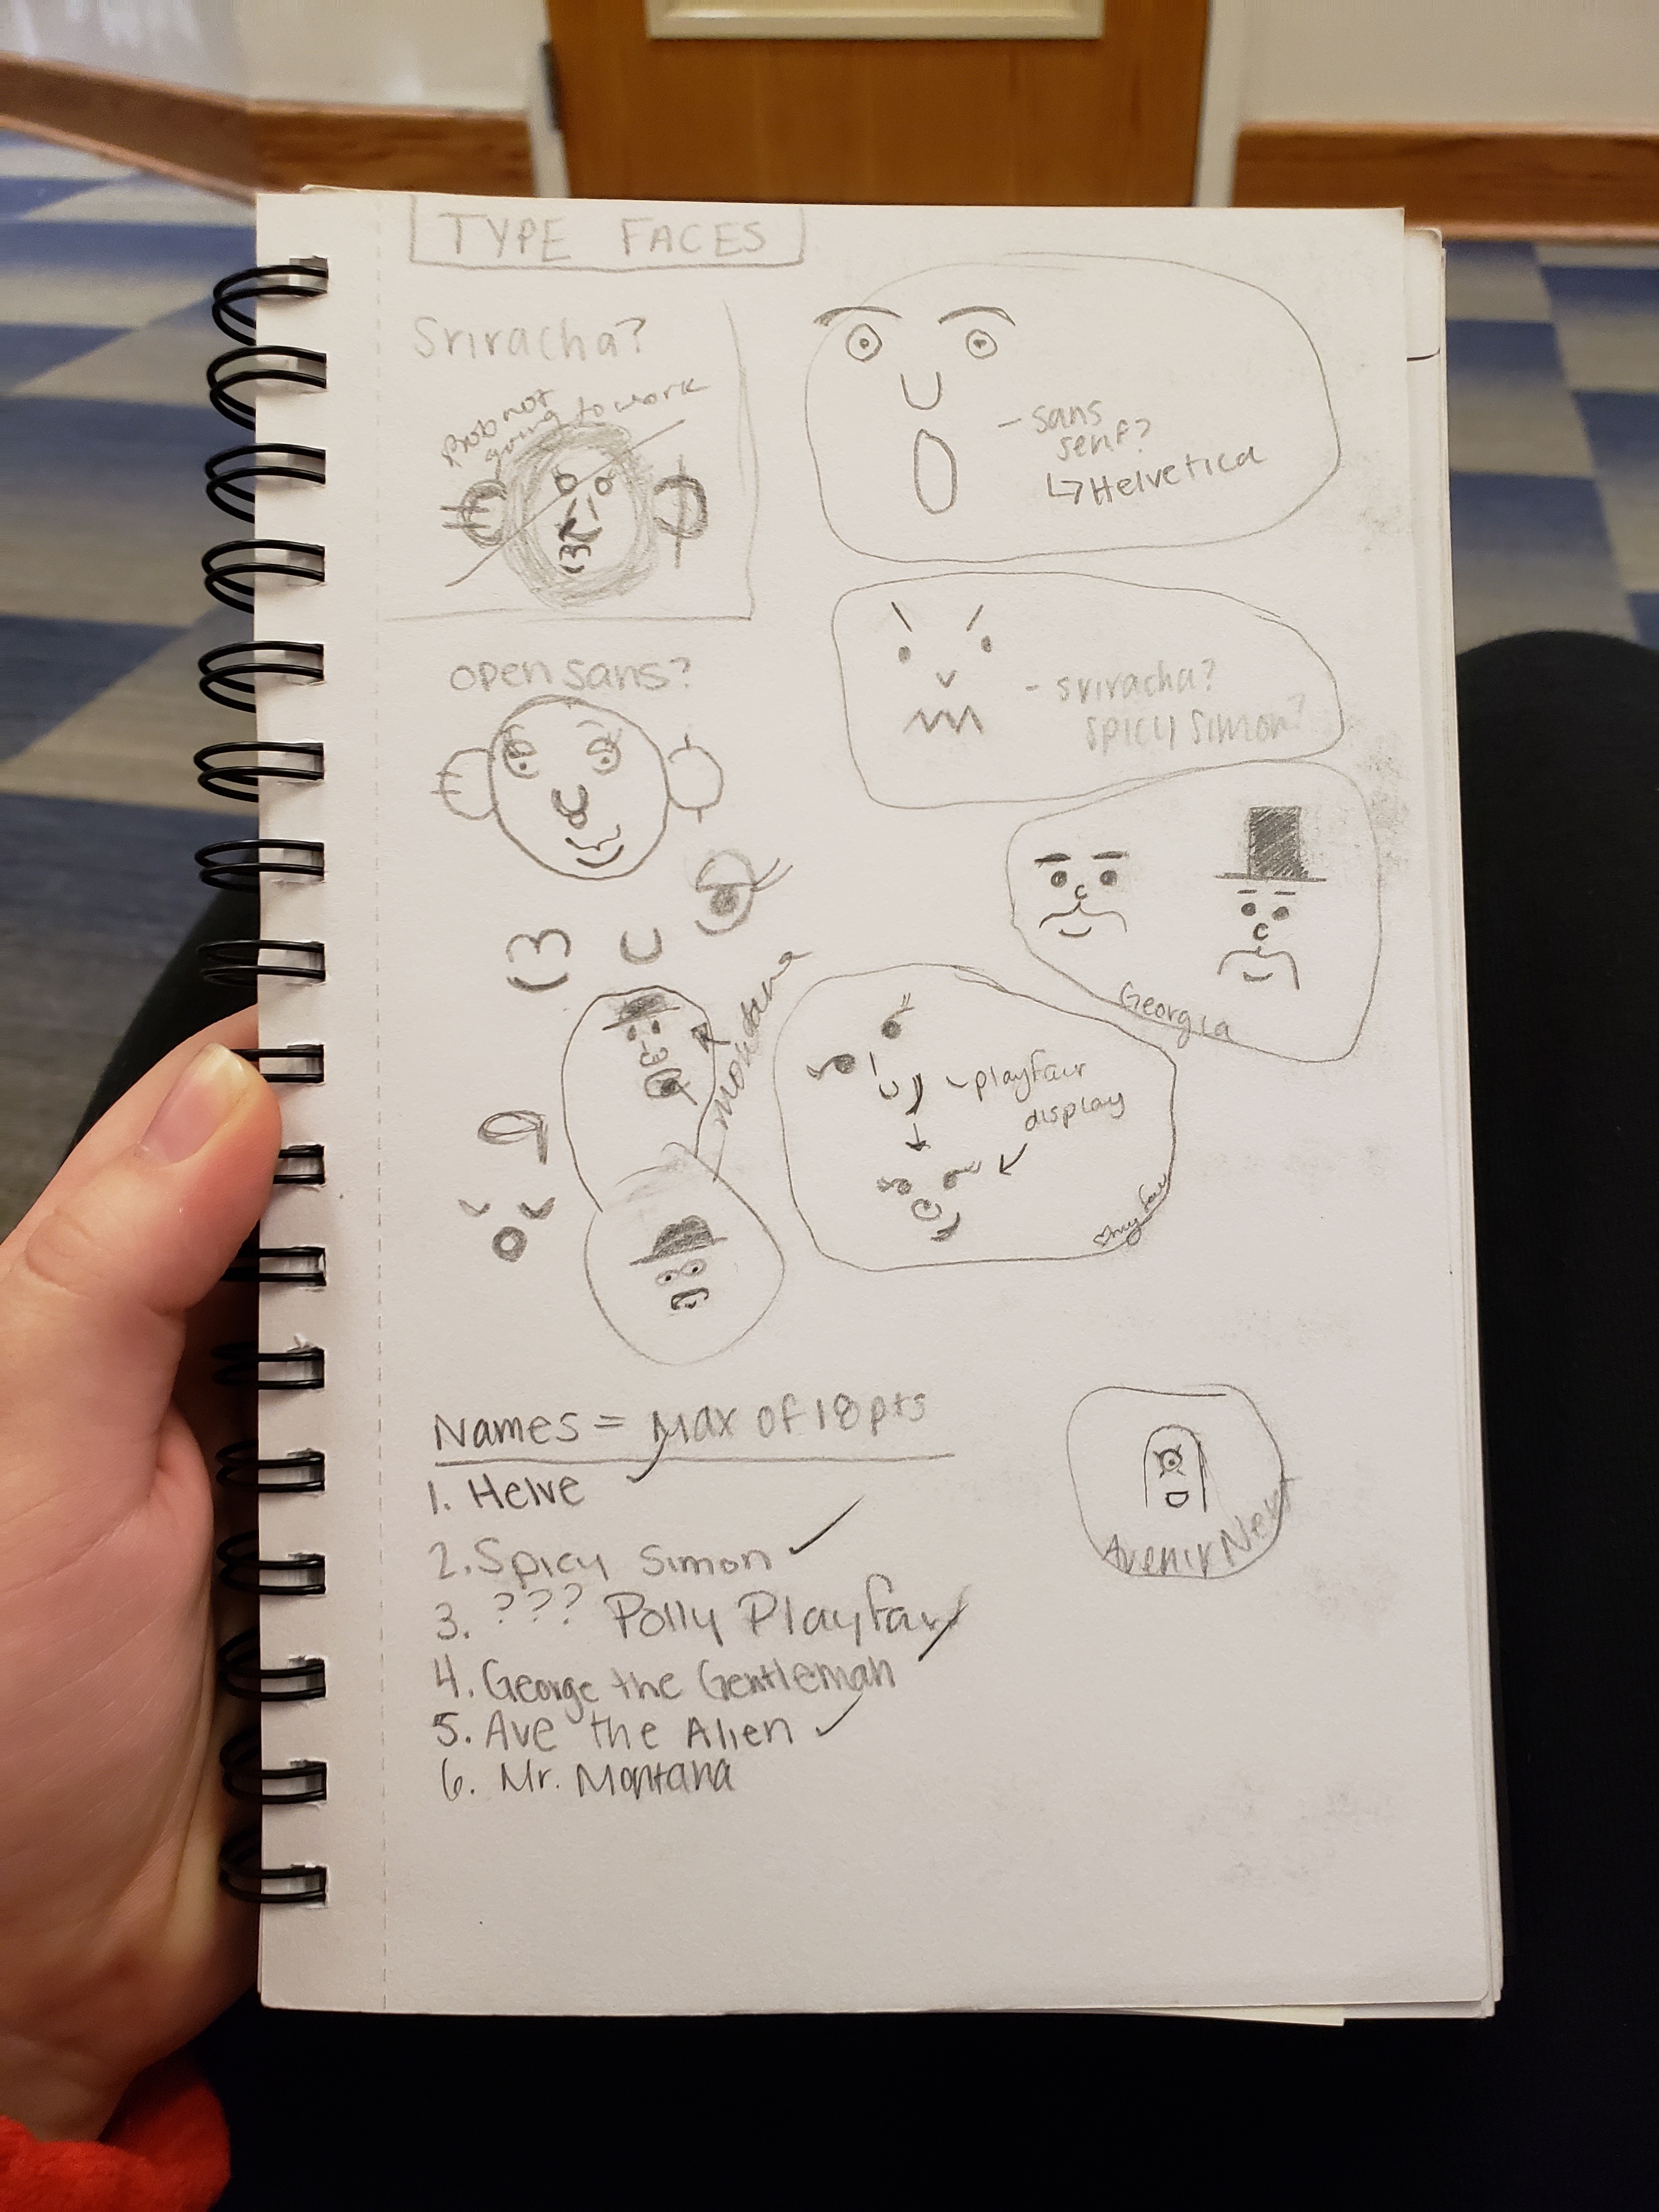 TYPE FACES
Sriracha?
Prob not
going to work
- sans
serif?
↳ Helvetica
open sans?
- sriracha?
spicy simon?
Georgia
montana
- playfair
display
♡my fav
Names = Max of 18pts
1. Helve ✓
2. Spicy Simon ✓
3. ??? Polly Playfair ✓
4. George the Gentleman
5. Ave the Alien ✓
6. Mr. Montana
Avenir Next